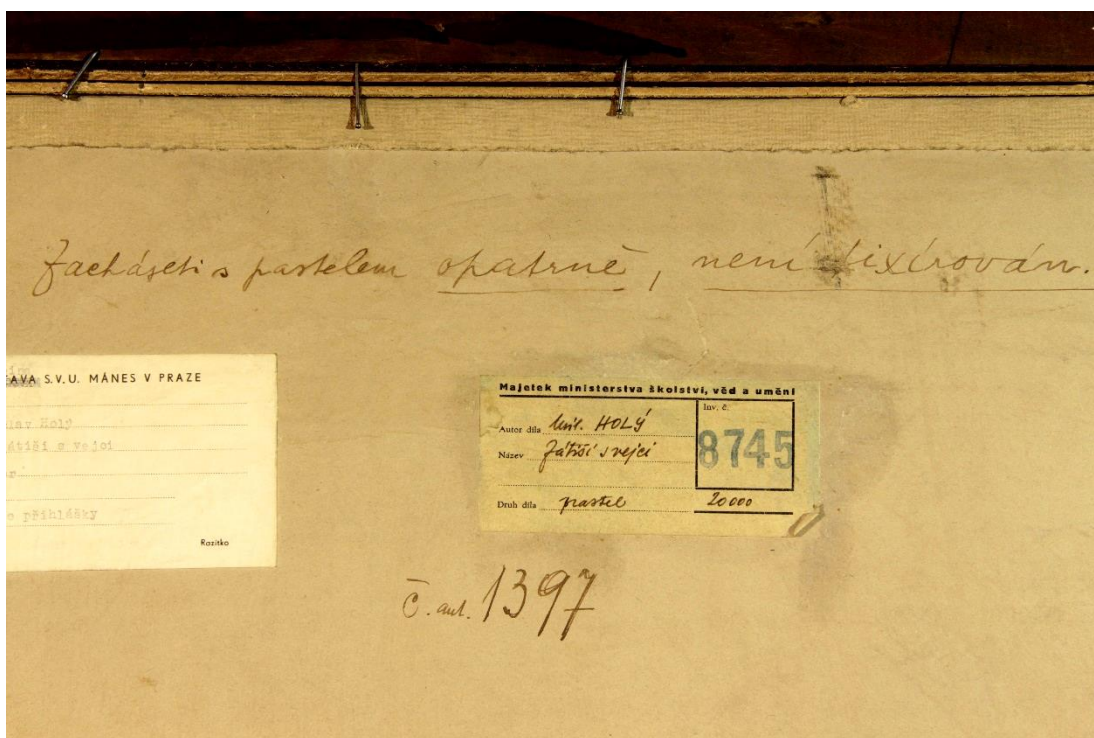 Zacházeti s pastelem opatrně, není fixírován.
AVA S.V.U. MÁNES V PRAZE
lav Holý
átiší s vejci
o přihlášky
Razítko
Majetek ministerstva školství, věd a umění
Autor díla Mil. HOLÝ
Název Zátiší s vejci
Druh díla pastel
Inv. č.
8745
20000
Č. aut. 1397